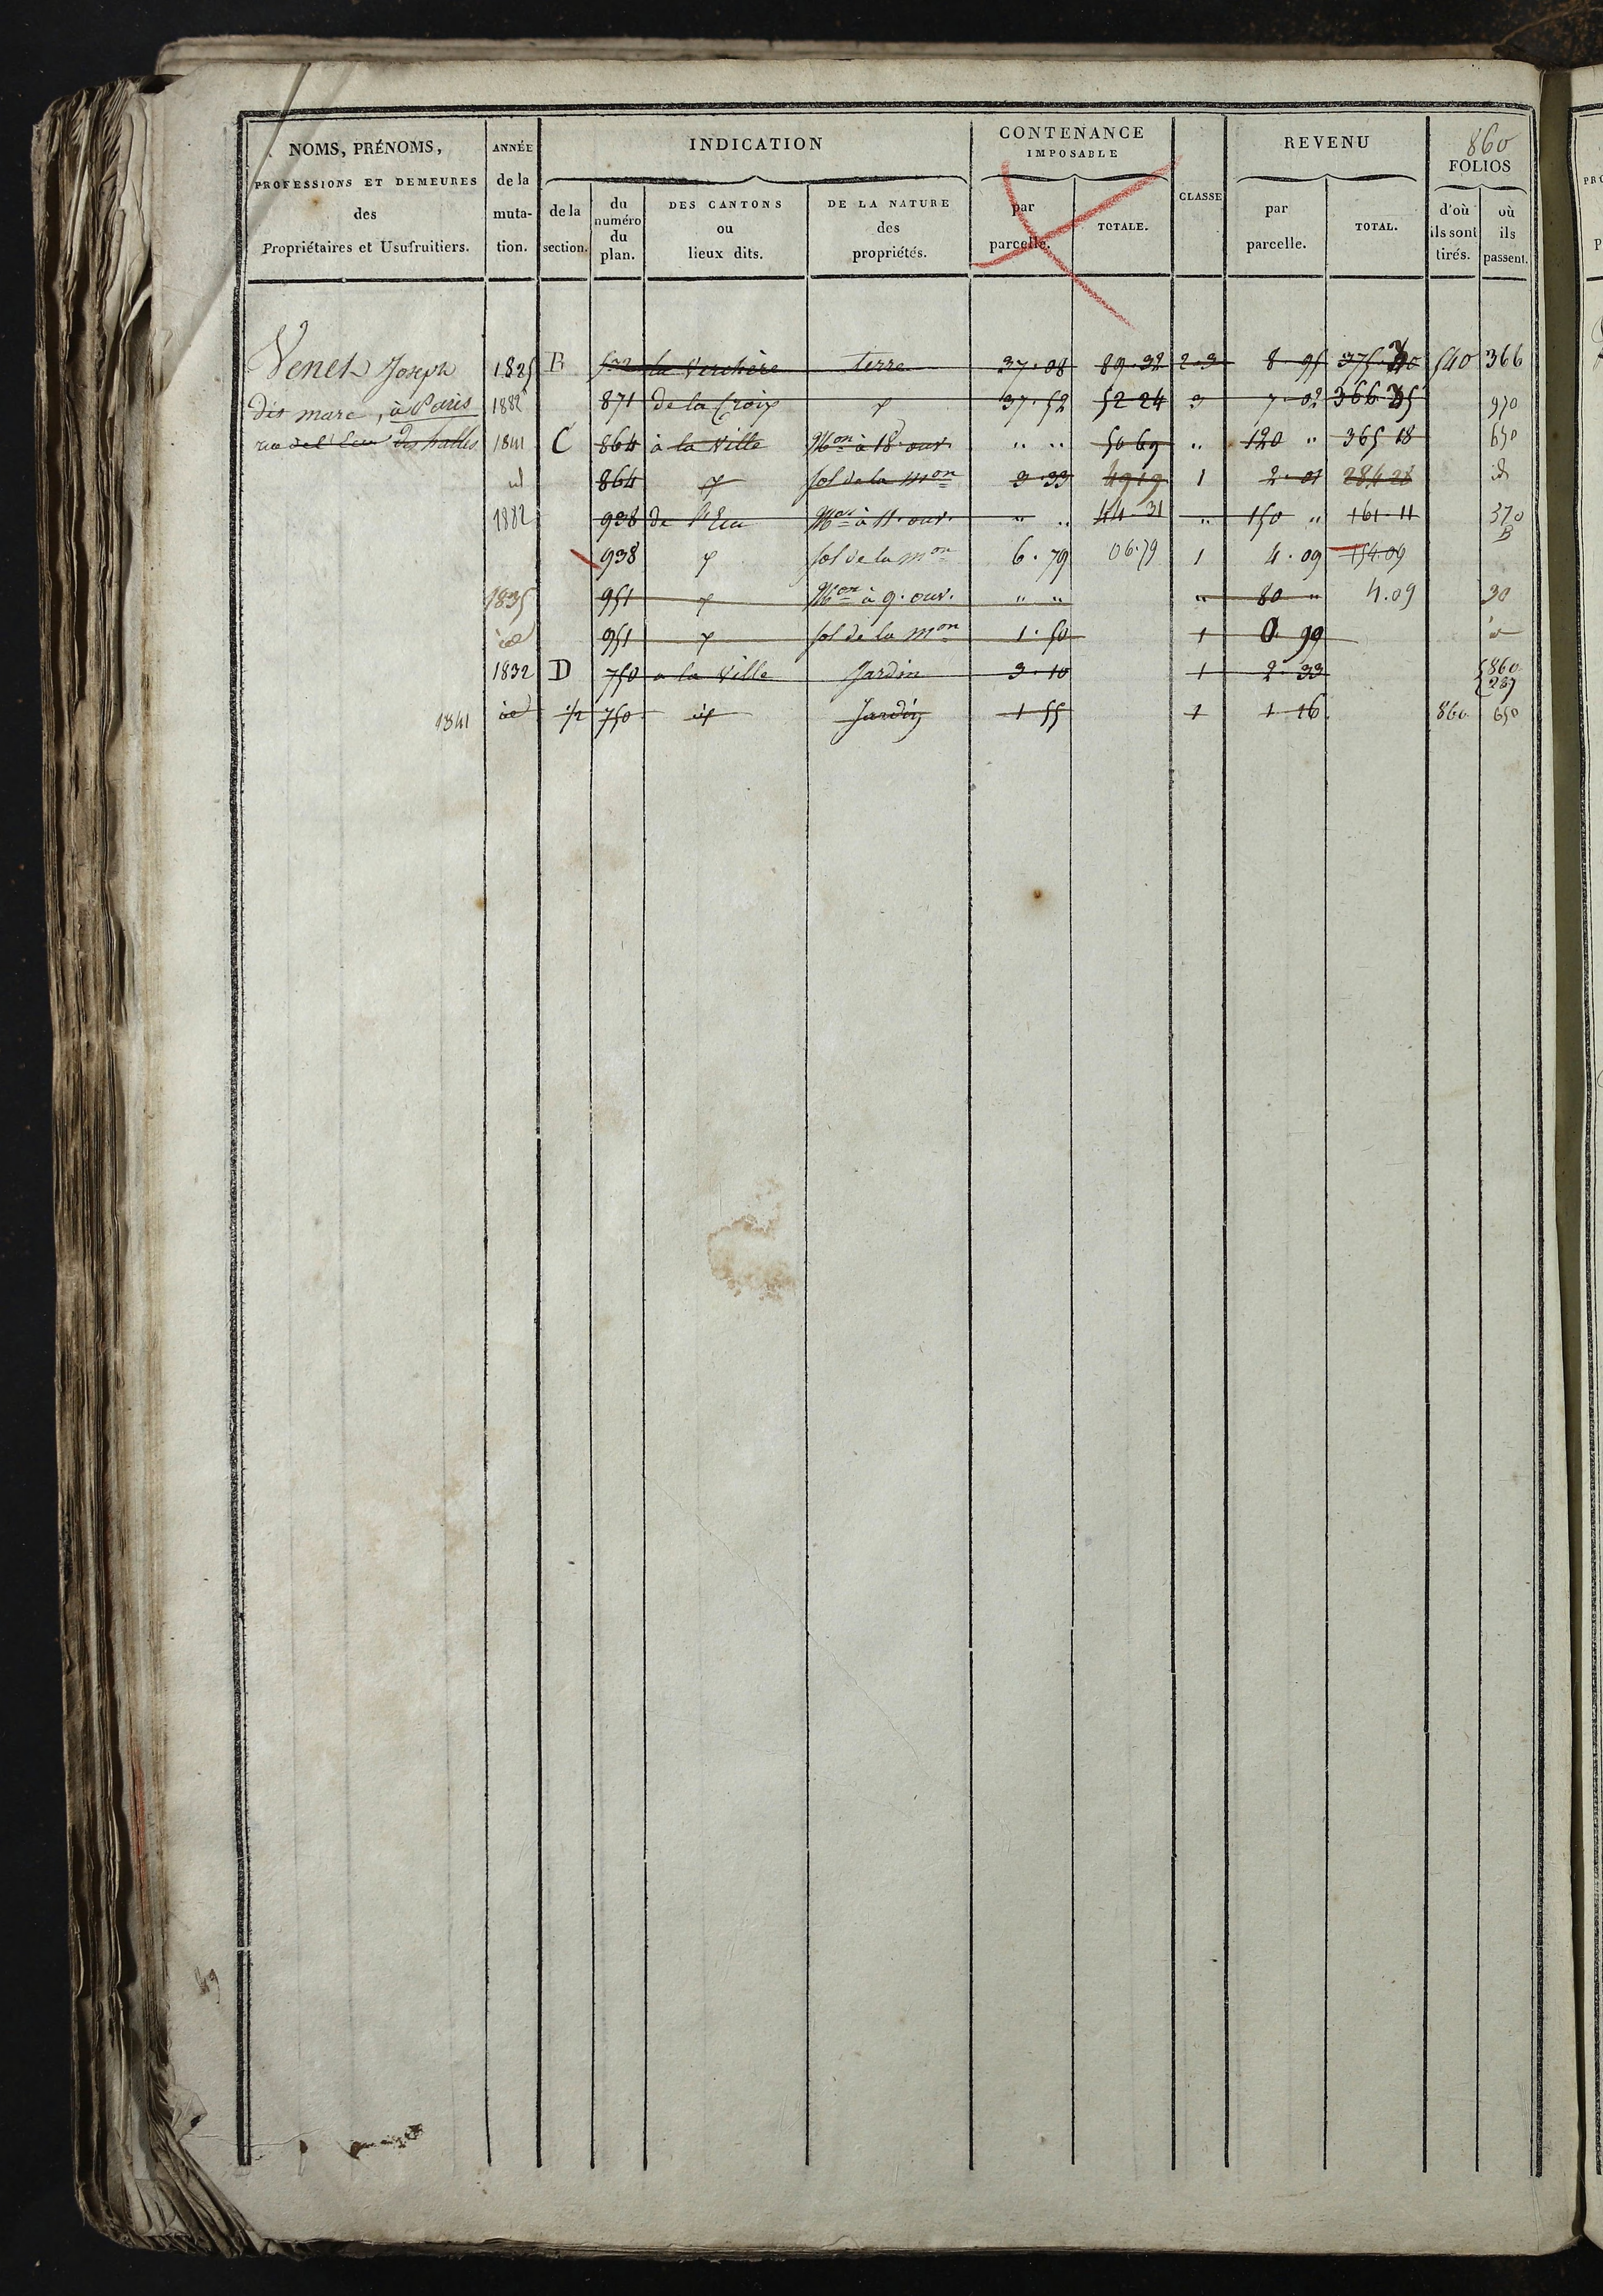 860
NOMS, PRÉNOMS,
PROFESSIONS ET DEMEURES
des
Propriétaires et Usufruitiers.
ANNÉE
de la
muta-
tion.
INDICATION
de la
section.
du
numéro
du
plan.
DES CANTONS
ou
lieux dits.
DE LA NATURE
des
propriétés.
CONTENANCE
IMPOSABLE
par
parcelle.
TOTALE.
CLASSE
REVENU
par
parcelle.
TOTAL.
FOLIOS
d'où
ils sont
tirés.
où
ils
passent.
Venet Joseph 1825 B 532 la Verchère terre 37.08 89.32 2-3 8-95 540 366
dit marc, à Paris 1882 871 de la Croix 37.52 52 24 3 7-02 970
des halles 1841 C 864 à la Ville Mon à 18 ouv. " " 50 69 " 120 " 365 18 650
id 864 sol de la mon 3-33 49 19 1 2-01 284 28 id
1882 938 de l'Eau Mon à 11 ouv. " " 44-31 " 150 " 161-11 370 B
938 sol de la mon 6.79 06.79 1 4.09 154.09
1835 951 Mon à 9. ouv. " " " 80 " 4.09 30
id 951 sol de la mon 1.50 1 0.99
1832 D 750 a la Ville Jardin 3-10 1 2-33 860 287
1841 id 1/2 750 id Jardin 1 55 1 1 16 860 650